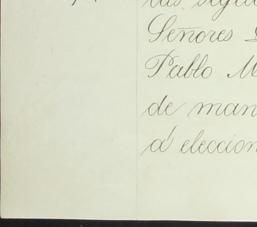 las sigu
Señores
Pablo M
de man
á eleccion